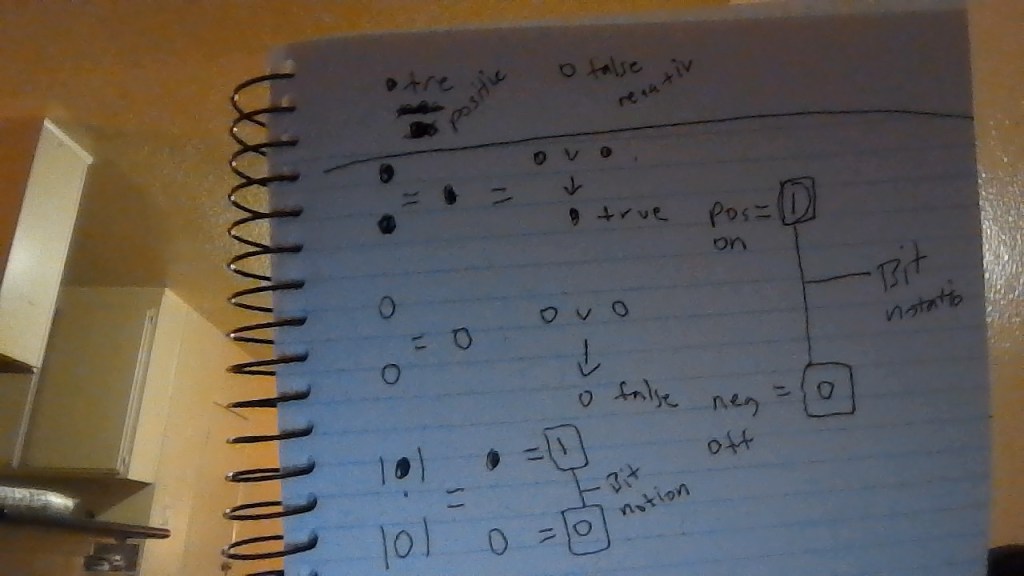 ● tre ○ false
positive negativ
● ● v ●
= ● = ↓
● ● true pos = 1
on
Bit
notatio
○ ○ v ○
= ○ ↓
○ ○ false neg = 0
off
|●| ● = 1
= Bit
notion
|○| ○ = 0